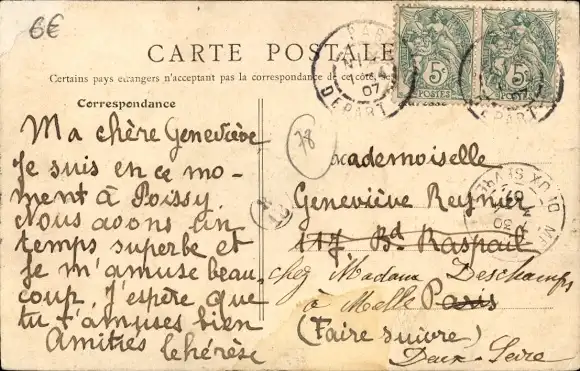 6€
CARTE POSTALE
Certains pays étrangers n'acceptant pas la correspondance de ce côté, se
Correspondance
Ma chère Geneviève
Je suis en ce mo-
ment à Poissy.
Nous avons un
temps superbe et
je m'amuse beau
coup. J'espère que
tu t'amuses bien
Amitiés
PARIS
DEPART
07
5c
POSTES
5c
POSTES
07
DEPART
78
cademoiselle
Geneviève Reynier
117 Bd Raspail
chez Madame Deschamps
à Melle Paris
(Faire suivre)
Deux-Sèvres
DEUX SEVRES
30
07